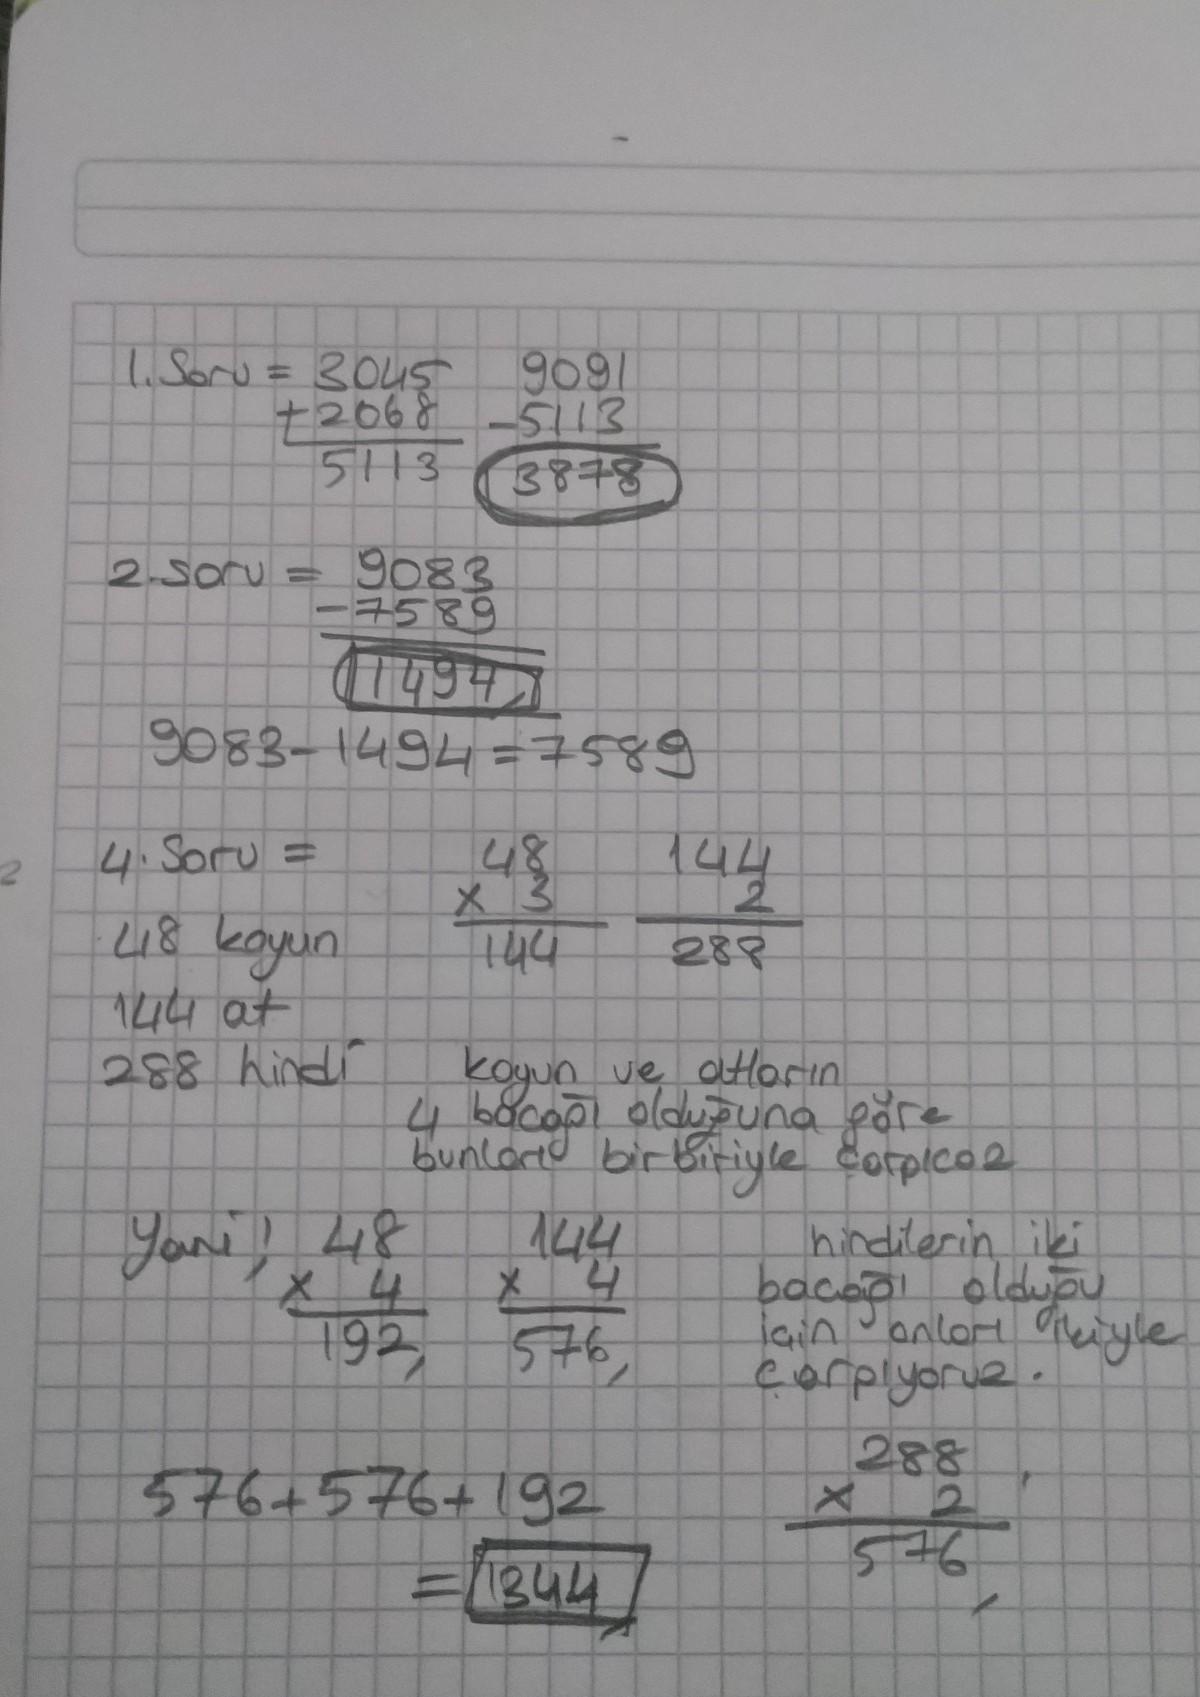 1. Soru = 3045 9091
+2068 -5113
5113 3878
2. soru = 9083
-7589
1494
9083-1494=7589
4. Soru = 48 144
x 3 2
48 koyun 144 288
144 at
288 hindi koyun ve atların
4 bacağı olduğuna göre
bunları birbiriyle çarpıcaz
Yani; 48 144 hindilerin iki
x 4 x 4 bacağı olduğu
192, 576, için onları ikiyle
çarpıyoruz.
288
576+576+192 x 2
= 1344 576,